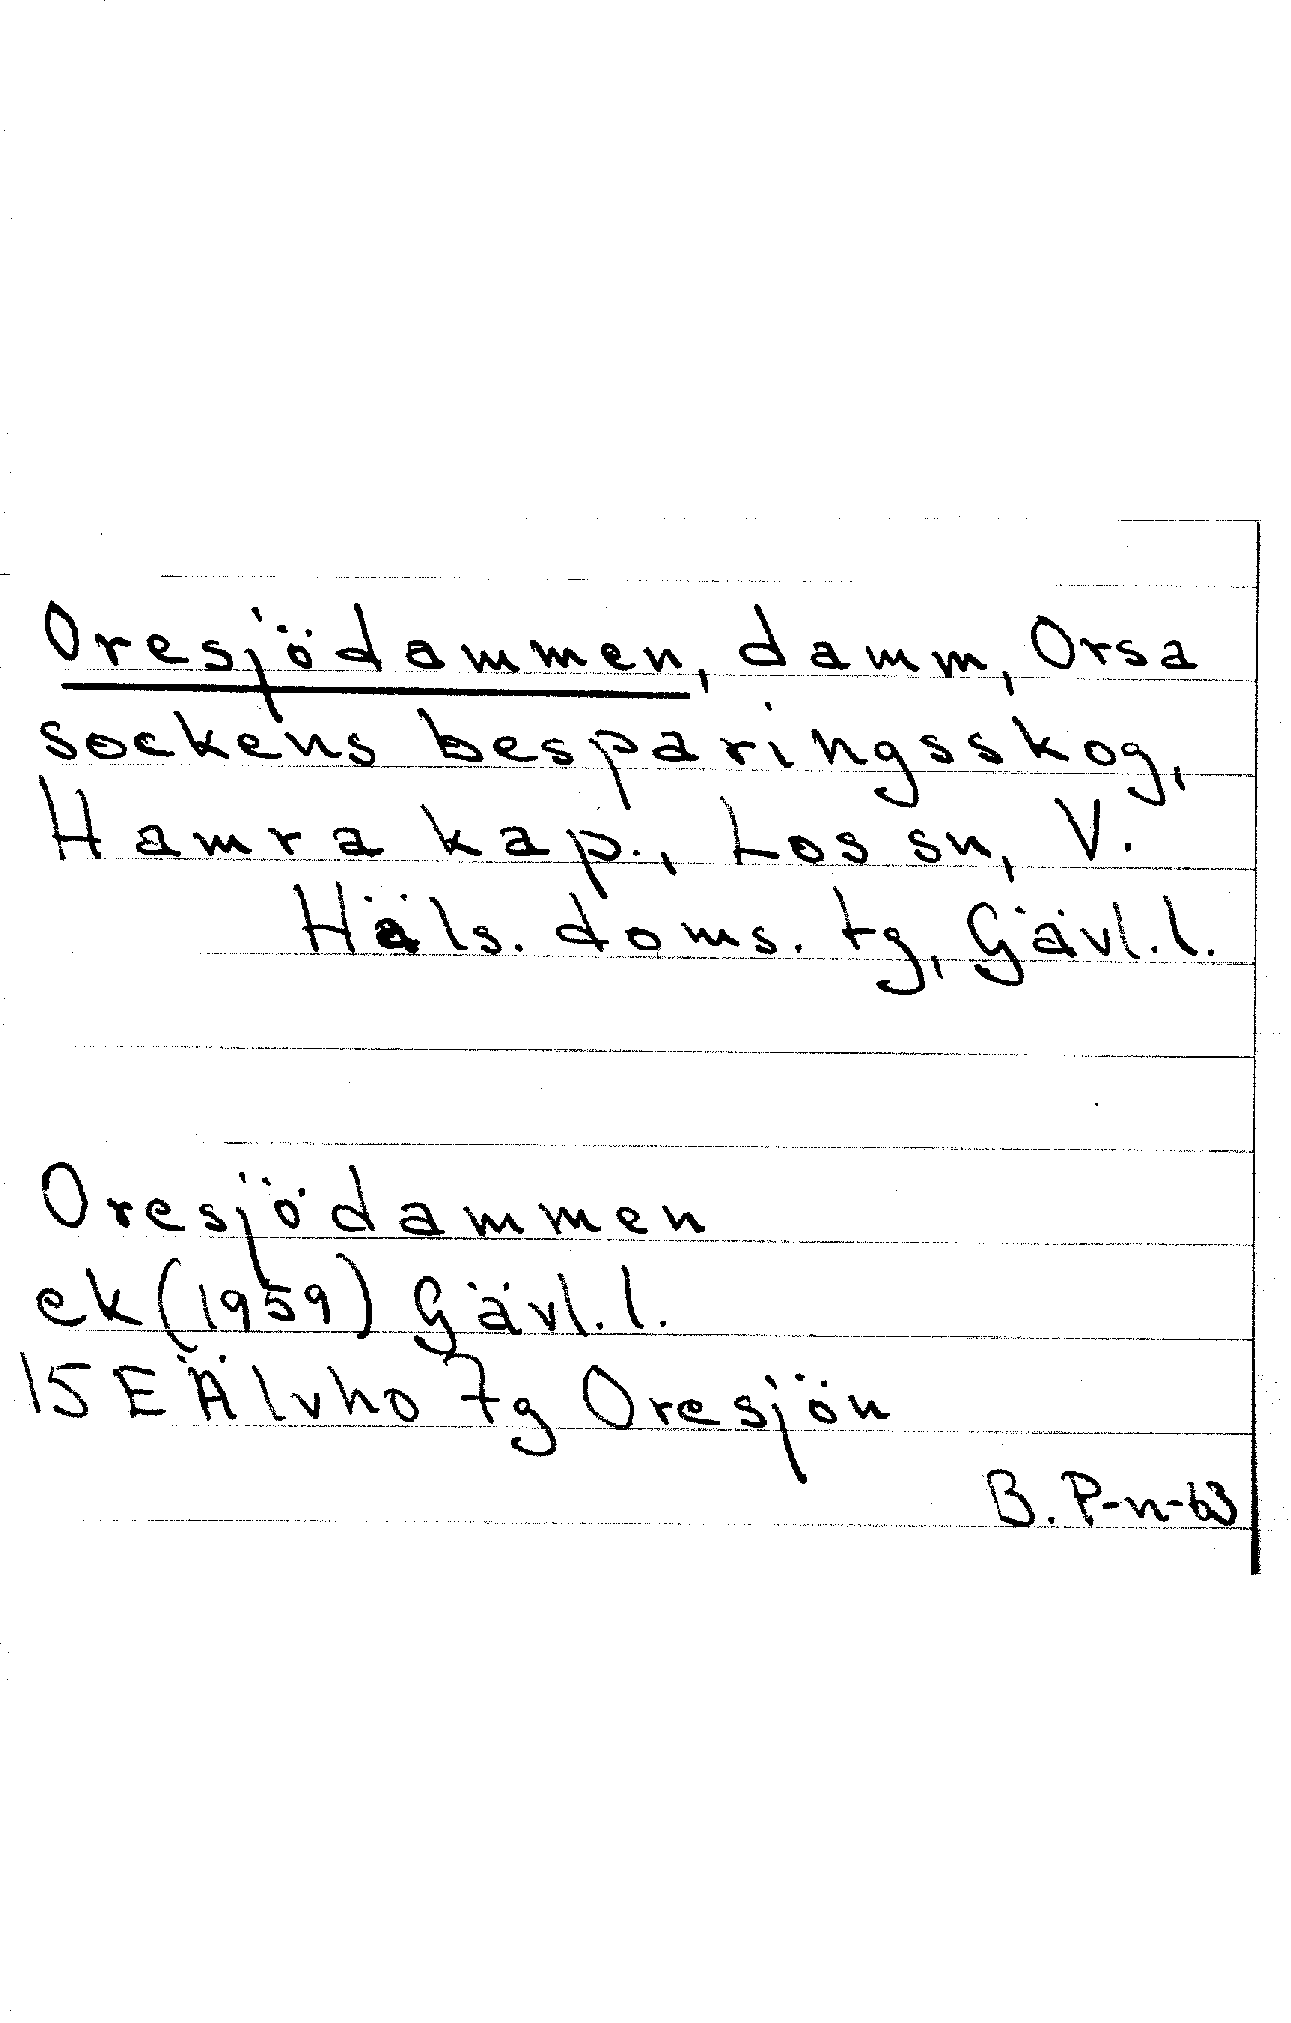 Oresjödammen, damm, Orsa
sockens besparingsskog,
Hamra kap., Los sn, V.
Häls. doms. tg, Gävl.l.
Oresjödammen
ek (1959) Gävl.l.
15E Älvho 7g Oresjön
B. P-n-63